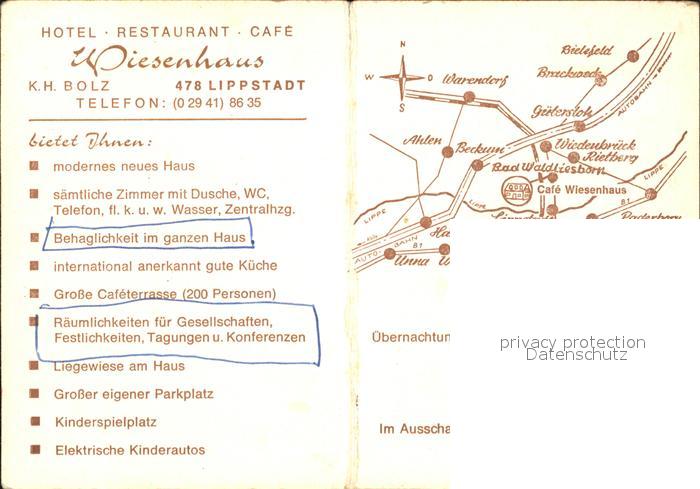 HOTEL · RESTAURANT · CAFÉ
Wiesenhaus
K.H. BOLZ 478 LIPPSTADT
TELEFON: (0 29 41) 86 35
bietet Ihnen:
modernes neues Haus
sämtliche Zimmer mit Dusche, WC,
Telefon, fl. k. u. w. Wasser, Zentralhzg.
Behaglichkeit im ganzen Haus
international anerkannt gute Küche
Große Caféterrasse (200 Personen)
Räumlichkeiten für Gesellschaften,
Festlichkeiten, Tagungen u. Konferenzen
Liegewiese am Haus
Großer eigener Parkplatz
Kinderspielplatz
Elektrische Kinderautos
N
W O
S
Bielefeld
Brackwede
Warendorf
Gütersloh
AUTOBAHN
Ahlen
Beckum
Wiedenbrück
Rietberg
Bad Waldliesborn
Café Wiesenhaus
LIPPE
LIPPE
Paderborn
AUTOBAHN
B1
B1
Unna
Übernachtun
privacy protection
Datenschutz
Im Ausscha